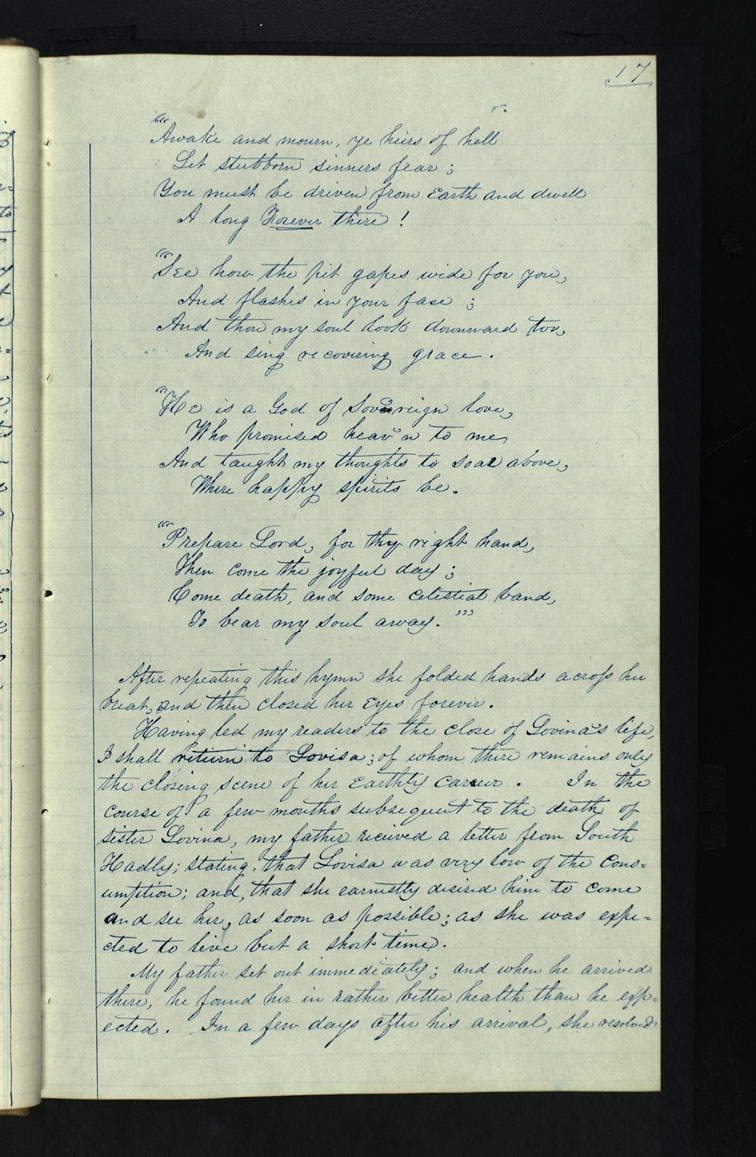 17
"Awake and mourn, ye heirs of hell
Let stubborn sinners fear;
You must be driven from Earth and dwell
A long Forever there!
"See how the pit gapes wide for you,
And flashes in your face;
And thou my soul look downward too,
And sing recovering grace.
"He is a God of sovereign love,
Who promised heav'n to me,
And taught my thoughts to soar above,
Where happy spirits be.
"Prepare Lord, for thy right hand,
Then come the joyful day;
Come death, and some celestial band,
To bear my soul away."'"
After repeating this hymn she folded hands across her
breat, and then closed her eyes forever.
Having led my readers to the close of Lovina's life,
I shall return to Lovisa; of whom there remains only
the closing scene of her Earthly career. In the
course of a few months subsequent to the death of
sister Lovina, my father received a letter from South
Hadly; stating, that Lovisa was very low of the cons=
umption; and, that she earnestly desired him to come
and see her, as soon as possible; as she was expe=
cted to live but a short time.
My father set out immediately; and when he arrived
there, he found her in rather better health than he exp=
ected. In a few days after his arrival, she resolved